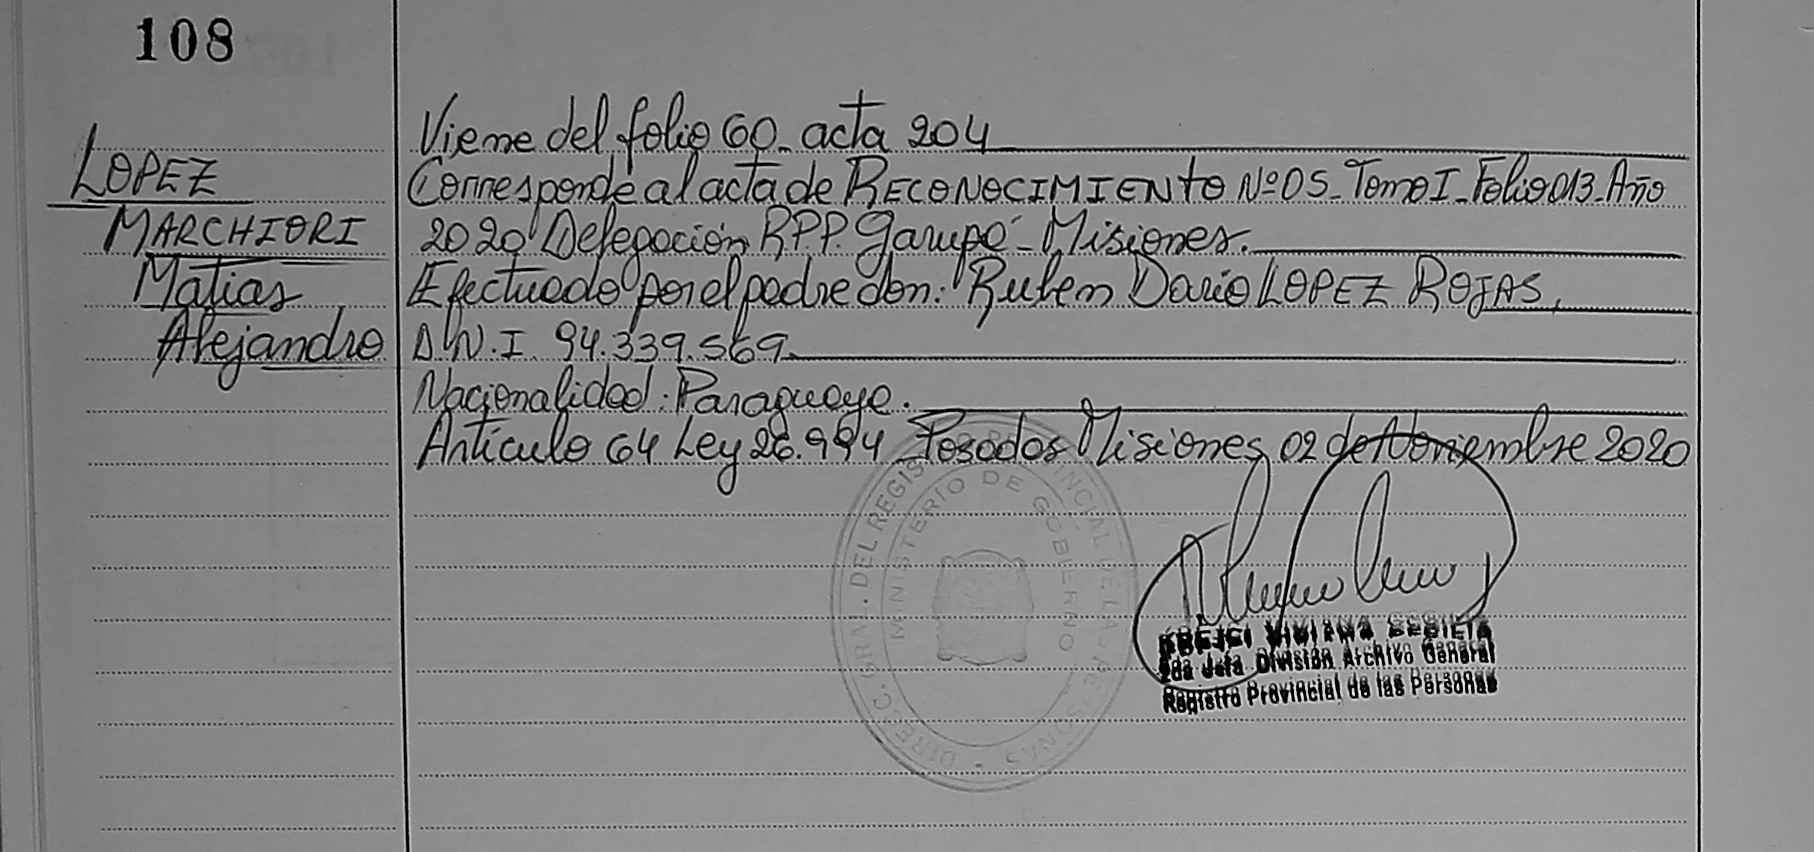 108
LOPEZ
MARCHIORI
Matias
Alejandro
Viene del folio 60_ acta 204
Corresponde al acta de RECONOCIMIENTO Nº05_ Tomo I_ Folio 013_ Año
2020 Delegación R.P.P. Garupá - Misiones.
Efectuado por el padre don: Ruben Dario LOPEZ ROJAS,
D.N.I. 94.339.569.
Nacionalidad: Paraguaya.
Artículo 64 Ley 26.994 Posadas Misiones 02 de Noviembre 2020
DIRECC. GRAL. DEL REGIS PROVINCIAL DE LAS PERSONAS
MINISTERIO DE GOBIERNO
VIVIANA
2da Jefa División Archivo General
Registro Provincial de las Personas